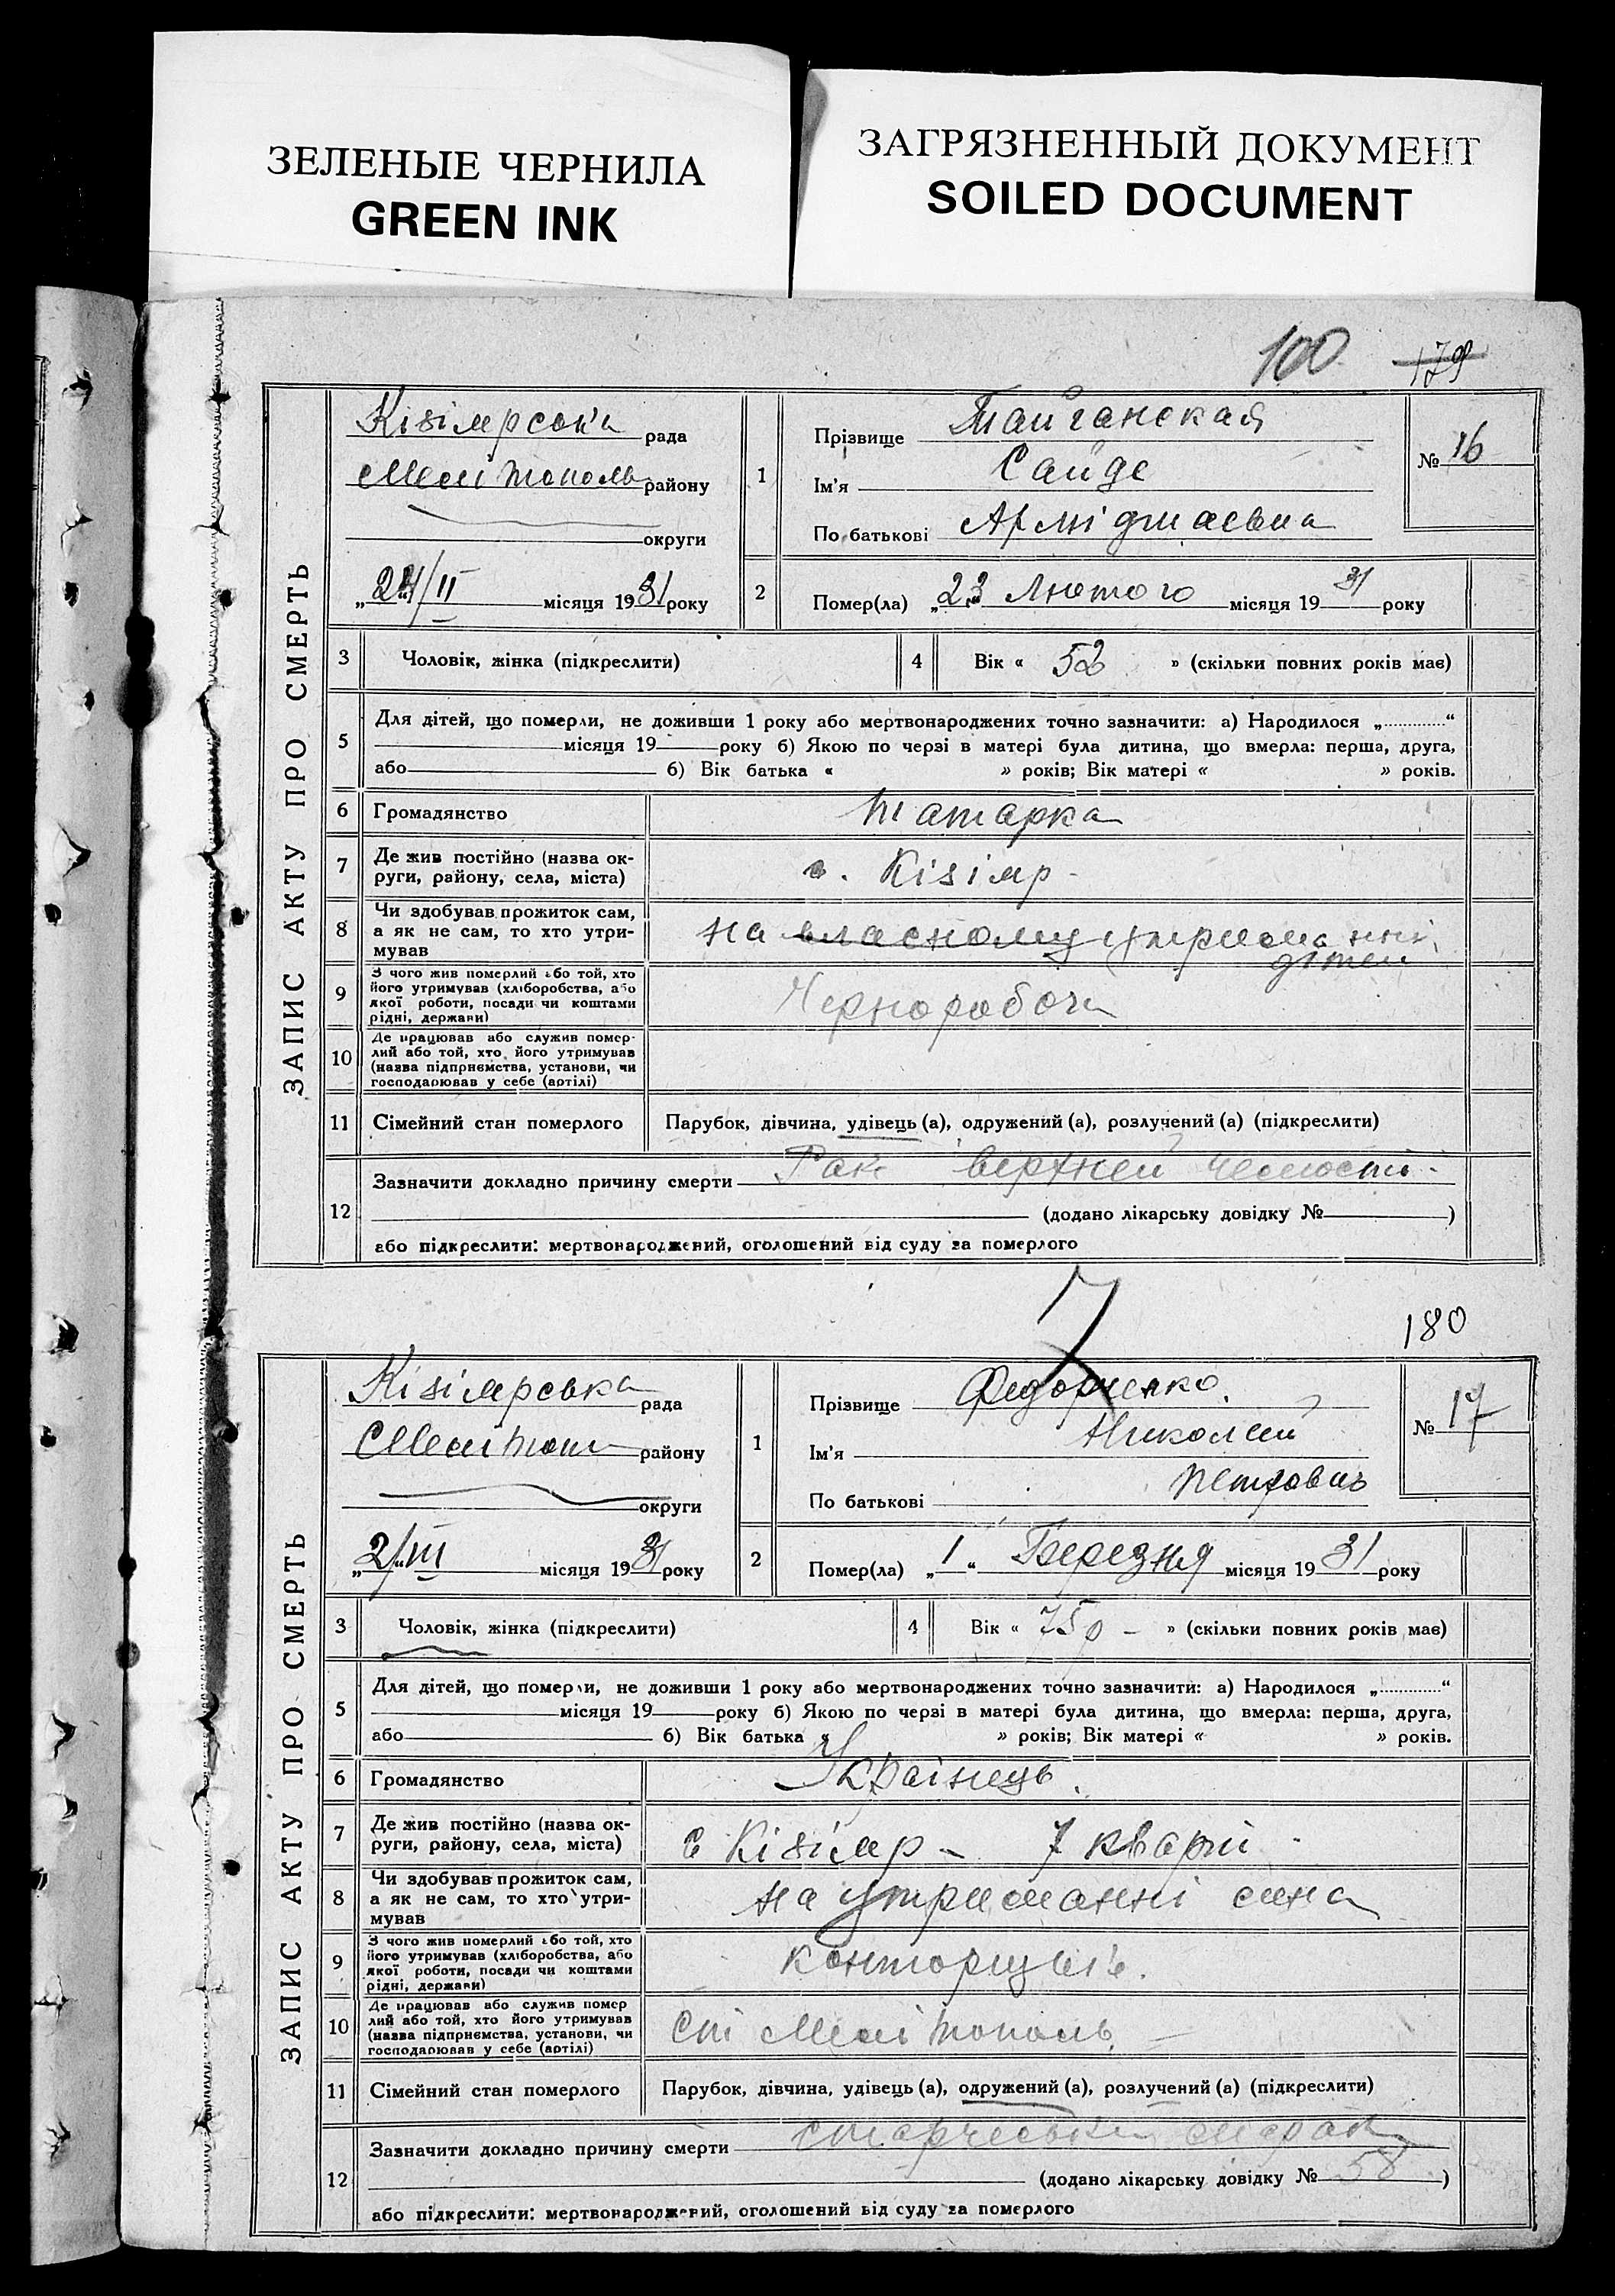 ЗЕЛЕНЫЕ ЧЕРНИЛА
GREEN INK
ЗАГРЯЗНЕННЫЙ ДОКУМЕНТ
SOILED DOCUMENT
100 179
ЗАПИС АКТУ ПРО СМЕРТЬ
рада
Мелітополь району
округи
„24/II місяця 1931 року
1
Прізвище Тайганская
Ім'я Сайде
По батькові
№ 16
2
Помер(ла) „23 Лютого місяця 1931 року
3 Чоловік, жінка (підкреслити)
4 Вік « 52 » (скільки повних років має)
5 Для дітей, що померли, не доживши 1 року або мертвонароджених точно зазначити: а) Народилося „............“
місяця 19 року б) Якою по черзі в матері була дитина, що вмерла: перша, друга,
або б) Вік батька « » років; Вік матері « » років.
6 Громадянство Татарка
7 Де жив постійно (назва округи, району, села, міста) с. Кізіяр
8 Чи здобував прожиток сам,
а як не сам, то хто утри-
мував на власному утриманні дітей
9 З чого жив померлий або той, хто
його утримував (хліборобства, або
якої роботи, посади чи коштами
рідні, держави)
10 Де працював або служив помер-
лий або той, хто його утримував
(назва підприємства, установи, чи
господарював у себе (артілі)
11 Сімейний стан померлого Парубок, дівчина, удівець (а), одружений (а), розлучений (а) (підкреслити)
12 Зазначити докладно причину смерти Рак верхней челюсти
(додано лікарську довідку № )
або підкреслити: мертвонароджений, оголошений від суду за померлого
7 180
ЗАПИС АКТУ ПРО СМЕРТЬ
Кізіярська рада
Меліtoп району
округи
„2/III місяця 1931 року
1
Прізвище Федорченко
Ім'я Николай
По батькові Петрович
№ 17
2
Помер(ла) „1“ Березня місяця 1931 року
3 Чоловік, жінка (підкреслити)
4 Вік « 75 р » (скільки повних років має)
5 Для дітей, що померли, не доживши 1 року або мертвонароджених точно зазначити: а) Народилося „............“
місяця 19 року б) Якою по черзі в матері була дитина, що вмерла: перша, друга,
або б) Вік батька « » років; Вік матері « » років.
6 Громадянство Українець
7 Де жив постійно (назва ок-
руги, району, села, міста) с Кізіяр – 7 кварт
8 Чи здобував прожиток сам,
а як не сам, то хто утри-
мував на утриманні сина
9 З чого жив померлий або той, хто
його утримував (хліборобства, або
якої роботи, посади чи коштами
рідні, держави) конторщик
10 Де працював або служив помер
лий або той, хто його утримував
(назва підприємства, установи, чи
господарював у себе (артілі) Ст Мелітополь
11 Сімейний стан померлого Парубок, дівчина, удівець (а), одружений (а), розлучений (а) (підкреслити)
12 Зазначити докладно причину смерти
(додано лікарську довідку № 58 )
або підкреслити: мертвонароджений, оголошений від суду за померлого